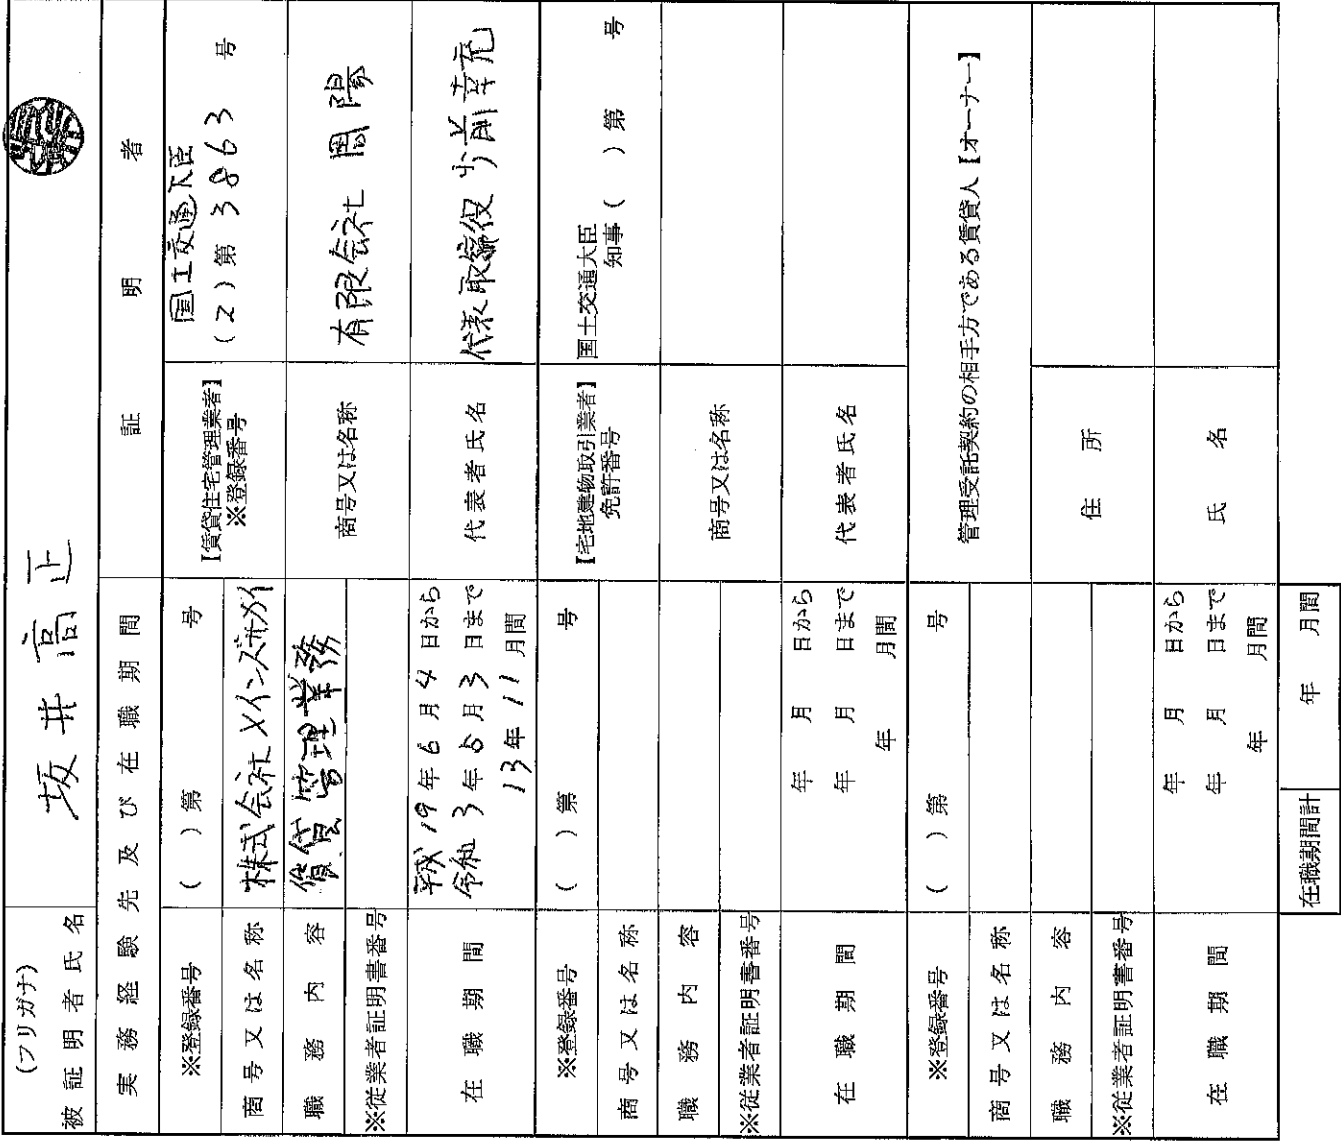 (フリガナ)
被証明者氏名 坂井高正
実務経験先及び在職期間 証明者
※登録番号 ( )第 号
【賃貸住宅管理業者】
※登録番号
国土交通大臣
(2)第 3863 号
商号又は名称 株式会社メインズ
商号又は名称 有限会社 陽
職務内容 賃貸管理業務
※従業者証明書番号
代表者氏名 代表取締役 前幸充
在職期間
平成19年6月4日から
令和3年5月3日まで
13年11月間
※登録番号 ( )第 号
【宅地建物取引業者】
免許番号
国土交通大臣
知事( )第 号
商号又は名称
商号又は名称
職務内容
※従業者証明書番号
代表者氏名
在職期間
年 月 日から
年 月 日まで
年 月間
※登録番号 ( )第 号
管理受託契約の相手方である賃貸人【オーナー】
商号又は名称
職務内容
住所
※従業者証明書番号
氏名
在職期間
年 月 日から
年 月 日まで
年 月間
在職期間計 年 月間